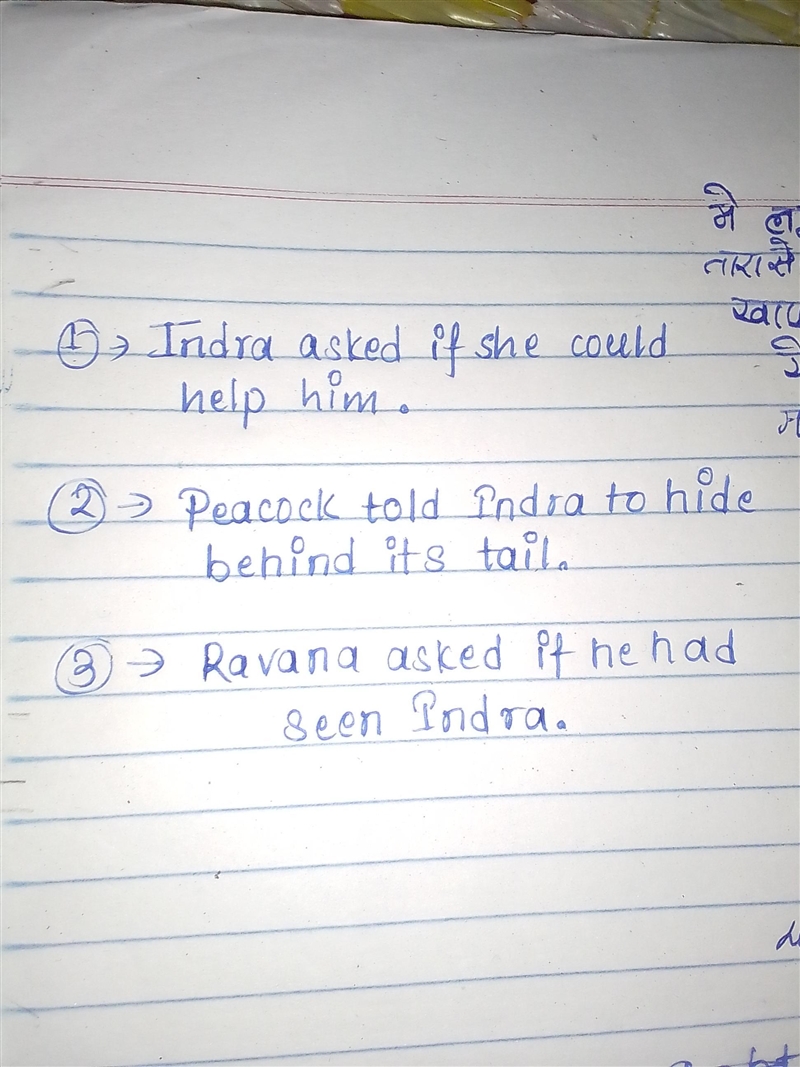 मे
तारासे
① → Indra asked if she could
help him.
② → Peacock told Indra to hide
behind its tail.
③ → Ravana asked if he had
seen Indra.